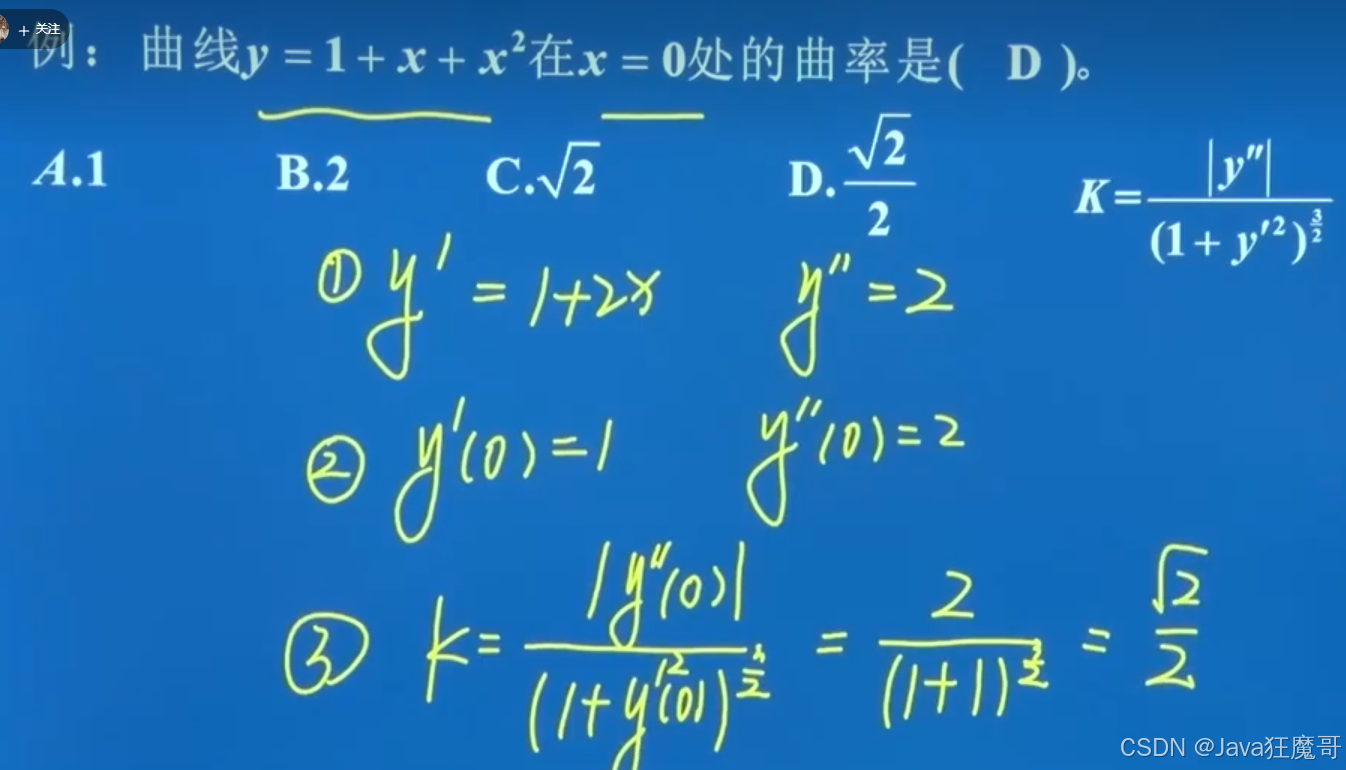 + 关注
例：曲线y = 1 + x + x²在x = 0处的曲率是( D )。
A.1 B.2 C.√2 D.√2/2 K=|y″|/(1 + y′²)^(3/2)
① y′ = 1+2x y″ = 2
② y′(0) = 1 y″(0) = 2
③ k = |y″(0)|/(1+y′²(0))^(3/2) = 2/(1+1)^(3/2) = √2/2
CSDN @Java狂魔哥